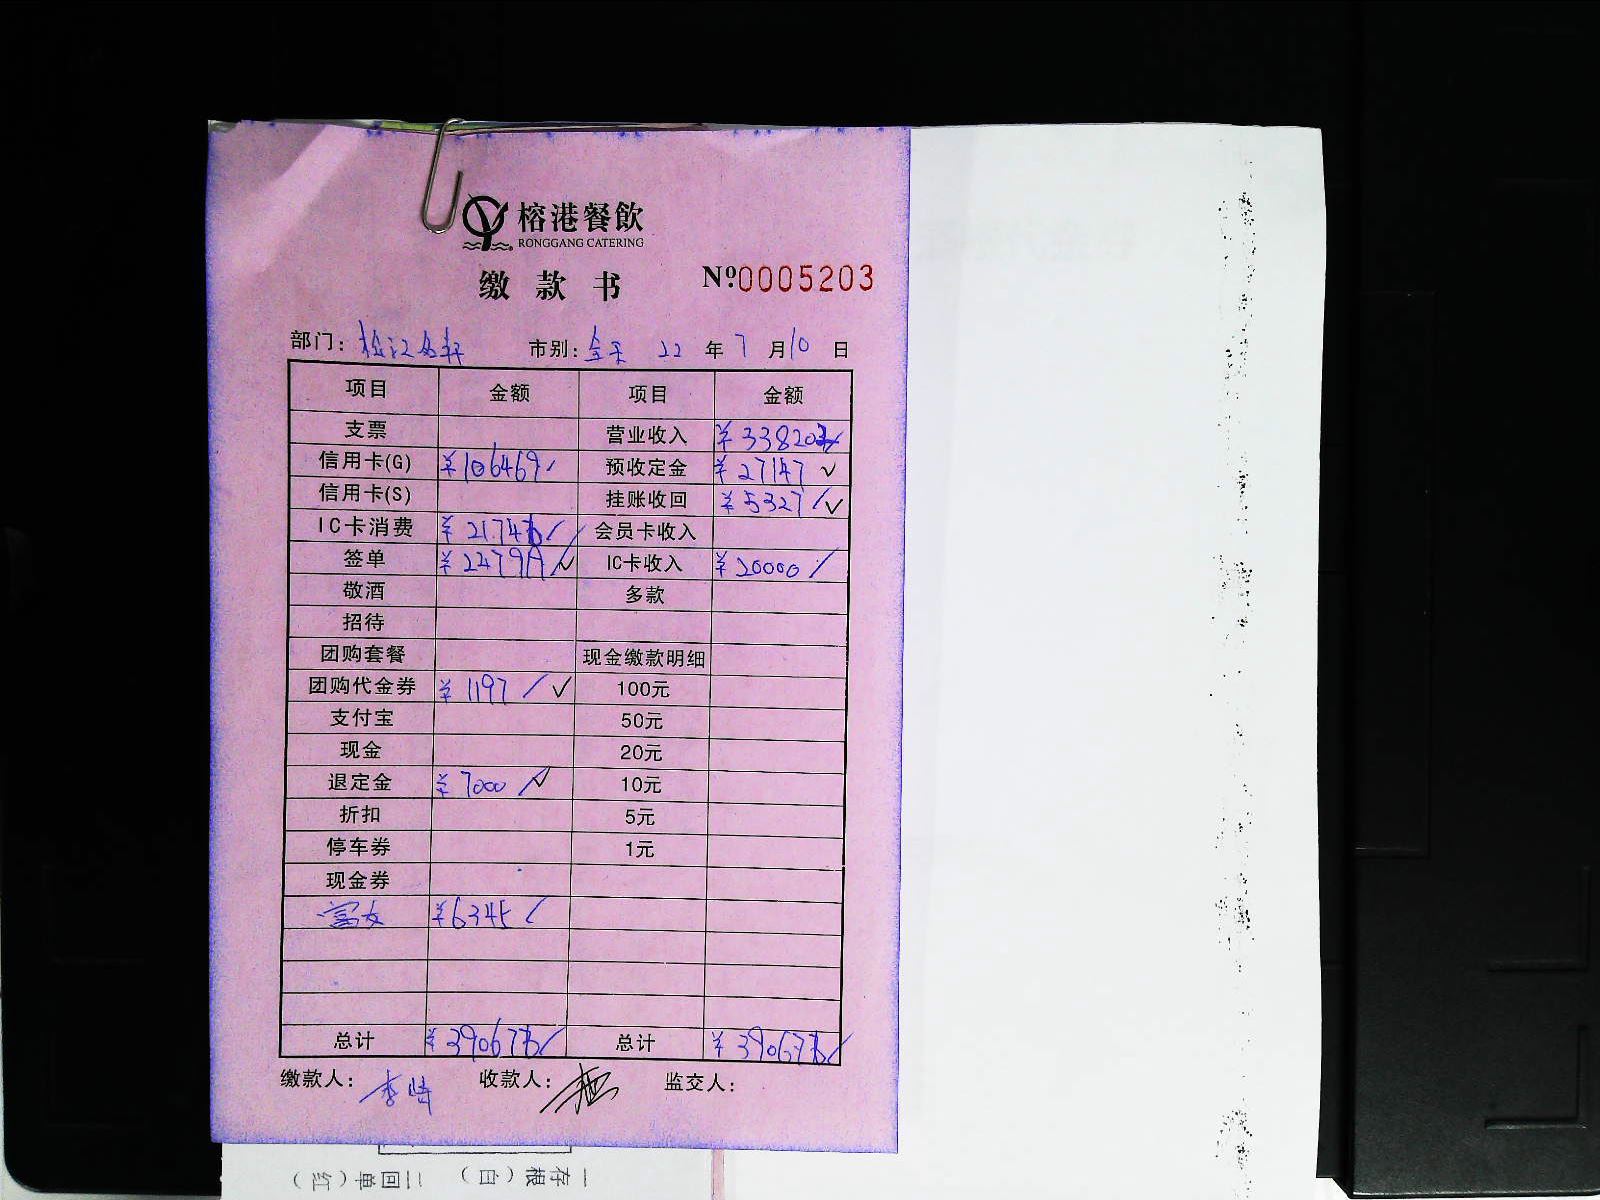 榕港餐飲
RONGGANG CATERING
缴款书 Nº:0005203
部门: 市别: 全天 22 年 7 月 10 日
项目 金额 项目 金额
支票 营业收入
信用卡(G) ¥106469 预收定金 ¥27147 ✓
信用卡(S) 挂账收回 ¥5327 ✓
IC卡消费 会员卡收入
签单 IC卡收入 ¥20000
敬酒 多款
招待
团购套餐 现金缴款明细
团购代金券 ¥1197 ✓ 100元
支付宝 50元
现金 20元
退定金 ¥7000 ✓ 10元
折扣 5元
停车券 1元
现金券
¥6345
总计 总计
缴款人: 收款人: 监交人:
一存根(白) 二回单(红)